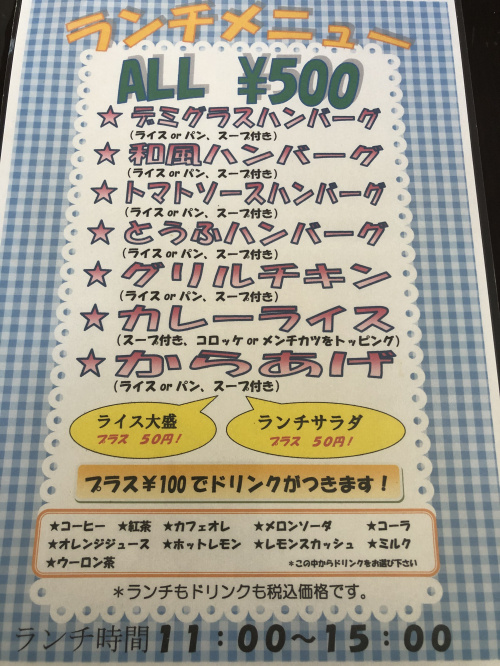 ランチメニュー
ALL ¥500
★デミグラスハンバーグ
(ライス or パン、スープ付き)
★和風ハンバーグ
(ライス or パン、スープ付き)
★トマトソースハンバーグ
(ライス or パン、スープ付き)
★とうふハンバーグ
(ライス or パン、スープ付き)
★グリルチキン
(ライス or パン、スープ付き)
★カレーライス
(スープ付き、コロッケ or メンチカツをトッピング)
★からあげ
(ライス or パン、スープ付き)
ライス大盛
プラス 50円!
ランチサラダ
プラス 50円!
プラス¥100でドリンクがつきます!
★コーヒー ★紅茶 ★カフェオレ ★メロンソーダ ★コーラ
★オレンジジュース ★ホットレモン ★レモンスカッシュ ★ミルク
★ウーロン茶 *この中からドリンクをお選び下さい
*ランチもドリンクも税込価格です。
ランチ時間11:00~15:00